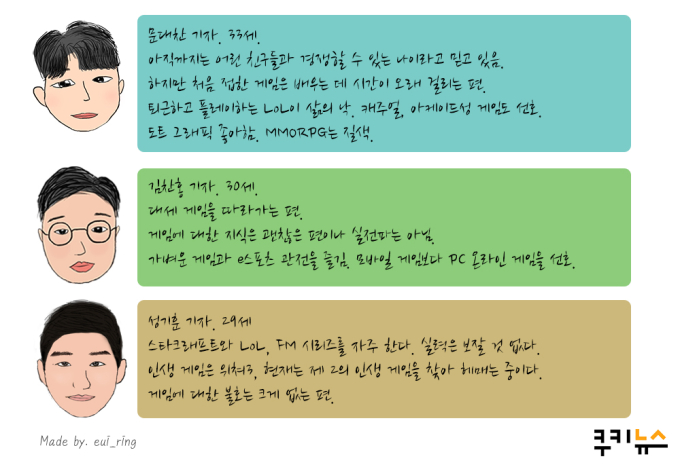 문대찬 기자. 33세.
아직까지는 어린 친구들과 경쟁할 수 있는 나이라고 믿고 있음.
하지만 처음 접한 게임은 배우는 데 시간이 오래 걸리는 편.
퇴근하고 플레이하는 LoL이 삶의 낙. 캐주얼, 아케이드성 게임도 선호.
도트 그래픽 좋아함. MMORPG는 질색.
김찬홍 기자. 30세.
대세 게임을 따라가는 편.
게임에 대한 지식은 괜찮은 편이나 실전파는 아님.
가벼운 게임과 e스포츠 관전을 즐김. 모바일 게임보다 PC 온라인 게임을 선호.
성기훈 기자. 29세
스타크래프트와 LoL, FM 시리즈를 자주 한다. 실력은 보잘 것 없다.
인생 게임은 위쳐3, 현재는 제 2의 인생 게임을 찾아 헤매는 중이다.
게임에 대한 불호는 크게 없는 편.
Made by. eui_ring
쿠키뉴스